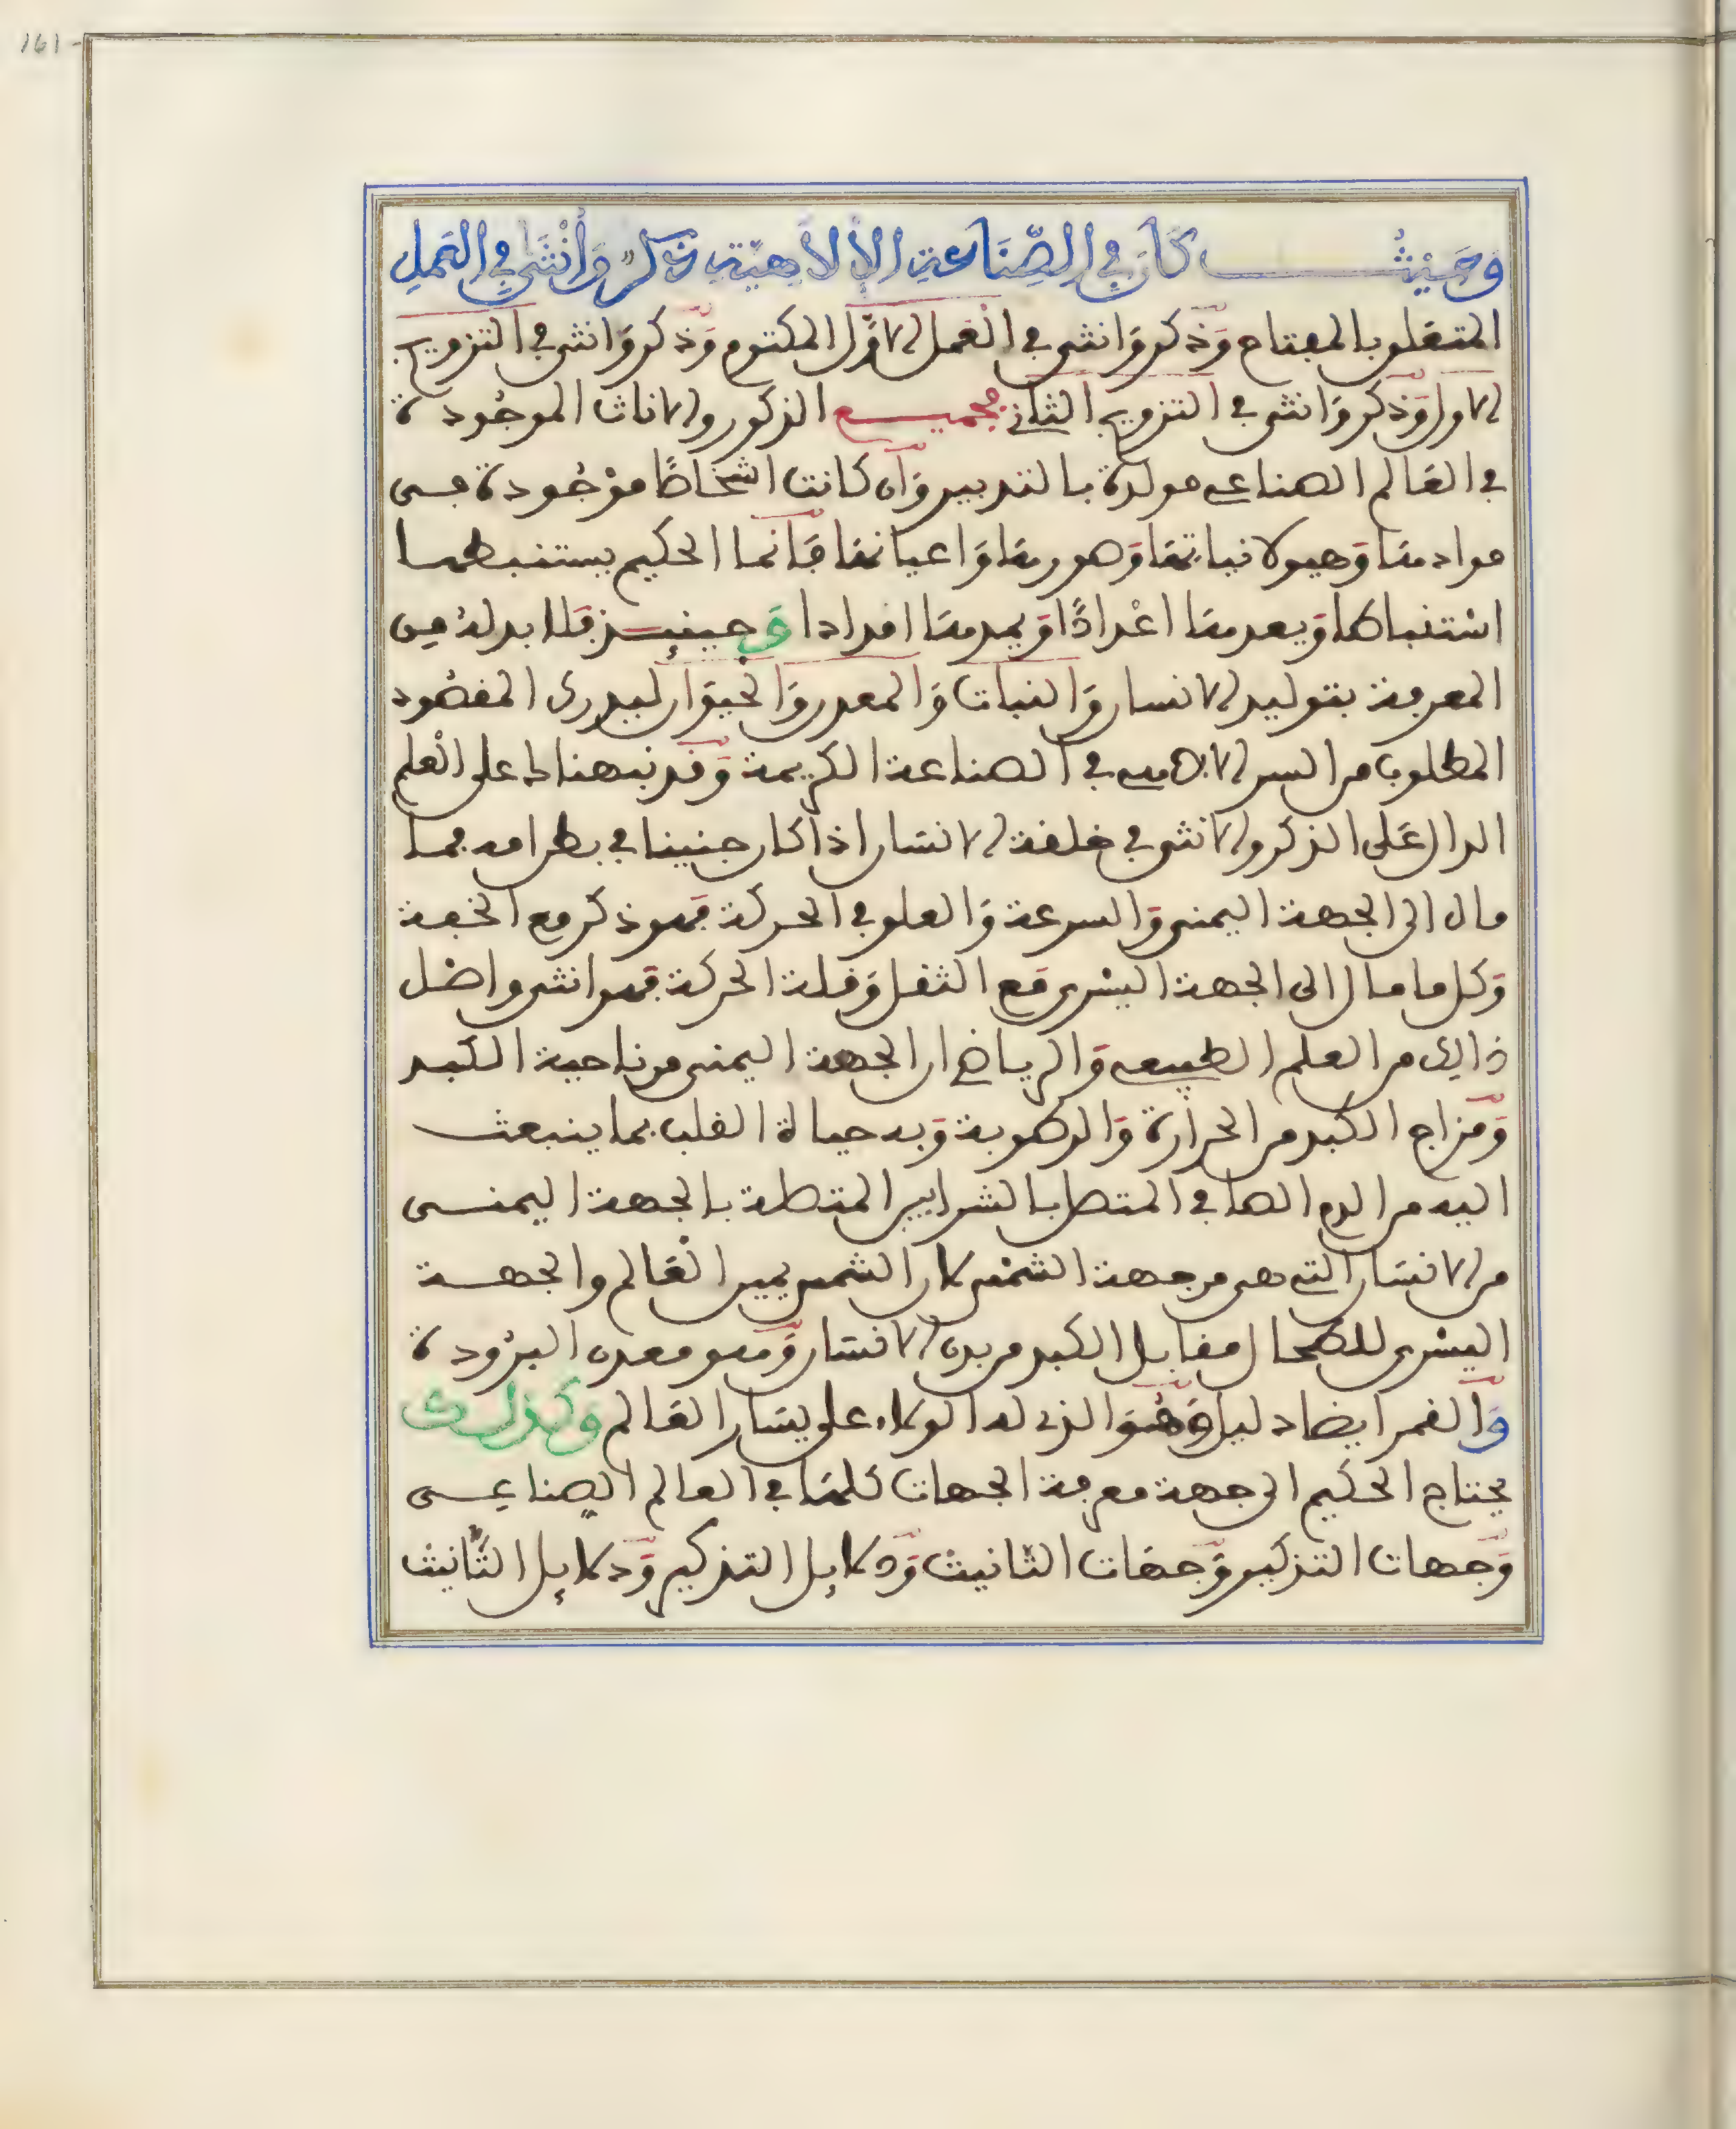 161
وَحَيْثُ كَانَ في الصِّنَاعَةِ الإلاهِيَّةِ ذَكَرٌ وَأُنْثَى في العَمَلِ
المتعلق بالمفتاح وَذكر وَانثى في العَمل الاوَّل المكتوم وَذكر وَانثى في التزويج
الاول وَذكر وَانثى في التزويج الثاني فجميع الذكور والاناث الموجُودة
في العَالم الصناعي مولدة بالتدبير وَان كانت اشخاصًا موْجُودة فى
موادها وَهيولانياتها وَصورها وَاعيانها فَانما الحكيم يستنبطها
اسْتنباطا وَيعدها اعْدادًا وَيمدها امدادا وَحِينئِذ فلا بد له مِن
المعرفة بتوليد الانسان وَالنبات وَالمعدن وَالحيوَان ليدرك المقصُود
المطلوب من السر الالاهي في الصناعة الكريمة وَقد نبهناك على العْلم
الدال عَلى الذكر والانثى في خلقة الانسَان اذا كان جنينا في بطن امه فما
مال الى الجهة اليمنى وَالسرعة وَالعلو في الحركة فهو ذكر مع الخفة
وَكل ما مال الى الجهة اليسْرى مَع الثقل وَقلة الحركة فهو انثى واصل
ذالك من العلم الطبيعي وَالرياضي ان الجهة اليمنى من ناحية الكَبد
وَمزاج الكبد من الحرارة وَالرطوبة وَبه حياة القلب بما ينبعث
اليه من الدم الصافي المتصل بالشرايين المتصلة بالجهة اليمنى
من الانسَان التي هي من جهة الشمْس لان الشمس يمين العَالم والجهة
اليسْرى للطحال مقابل الكبد من بدن الانسَان وَهو معدن البرُودة
وَالقمر ايضا دليل وَهُوَ الذي له الولاء على يسَار العَالم وَكَذلك
يحتاج الحكيم الى جهة معرفة الجهات كلهَا في العالم الصِناعِى
وَجهات التذكير وَجهَات التانيث وَدلايل التذكير وَدلايل التَّانيث